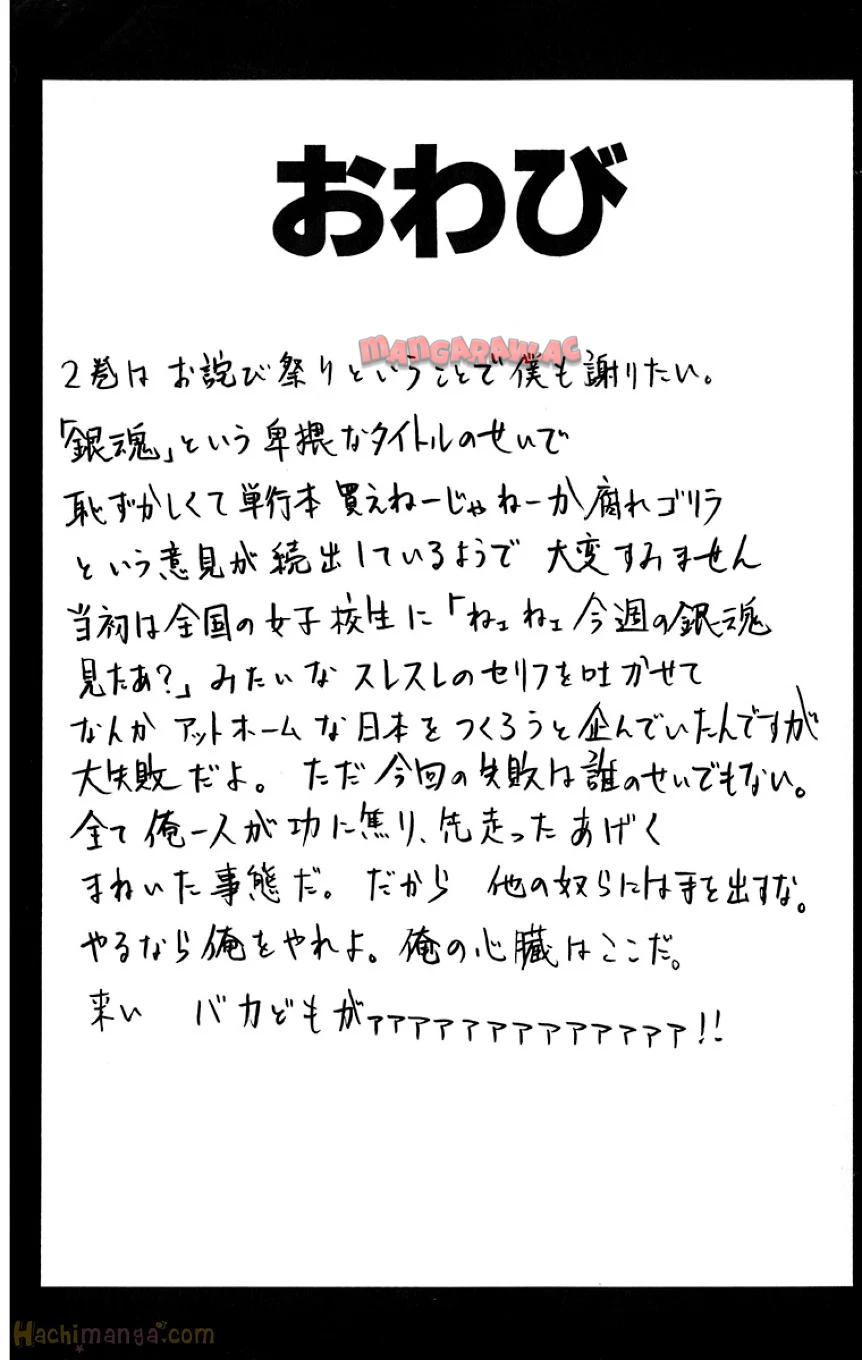 おわび
MANGARAW.AC
2巻はお詫び祭りということで僕も謝りたい。
「銀魂」という卑猥なタイトルのせいで
恥ずかしくて単行本買えねーじゃねーか腐れゴリラ
という意見が続出しているようで 大変すみません
当初は全国の女子校生に「ねェねェ今週の銀魂
見たぁ?」みたいなスレスレのセリフを吐かせて
なんかアットホームな日本をつくろうと企んでいたんですが
大失敗だよ。ただ今回の失敗は誰のせいでもない。
全て俺一人が功に焦り、先走ったあげく
まねいた事態だ。だから 他の奴らには手を出すな。
やるなら俺をやれよ。俺の心臓はここだ。
来い バカどもがァァァァァァァァァァァァァ!!
Hachimanga.com